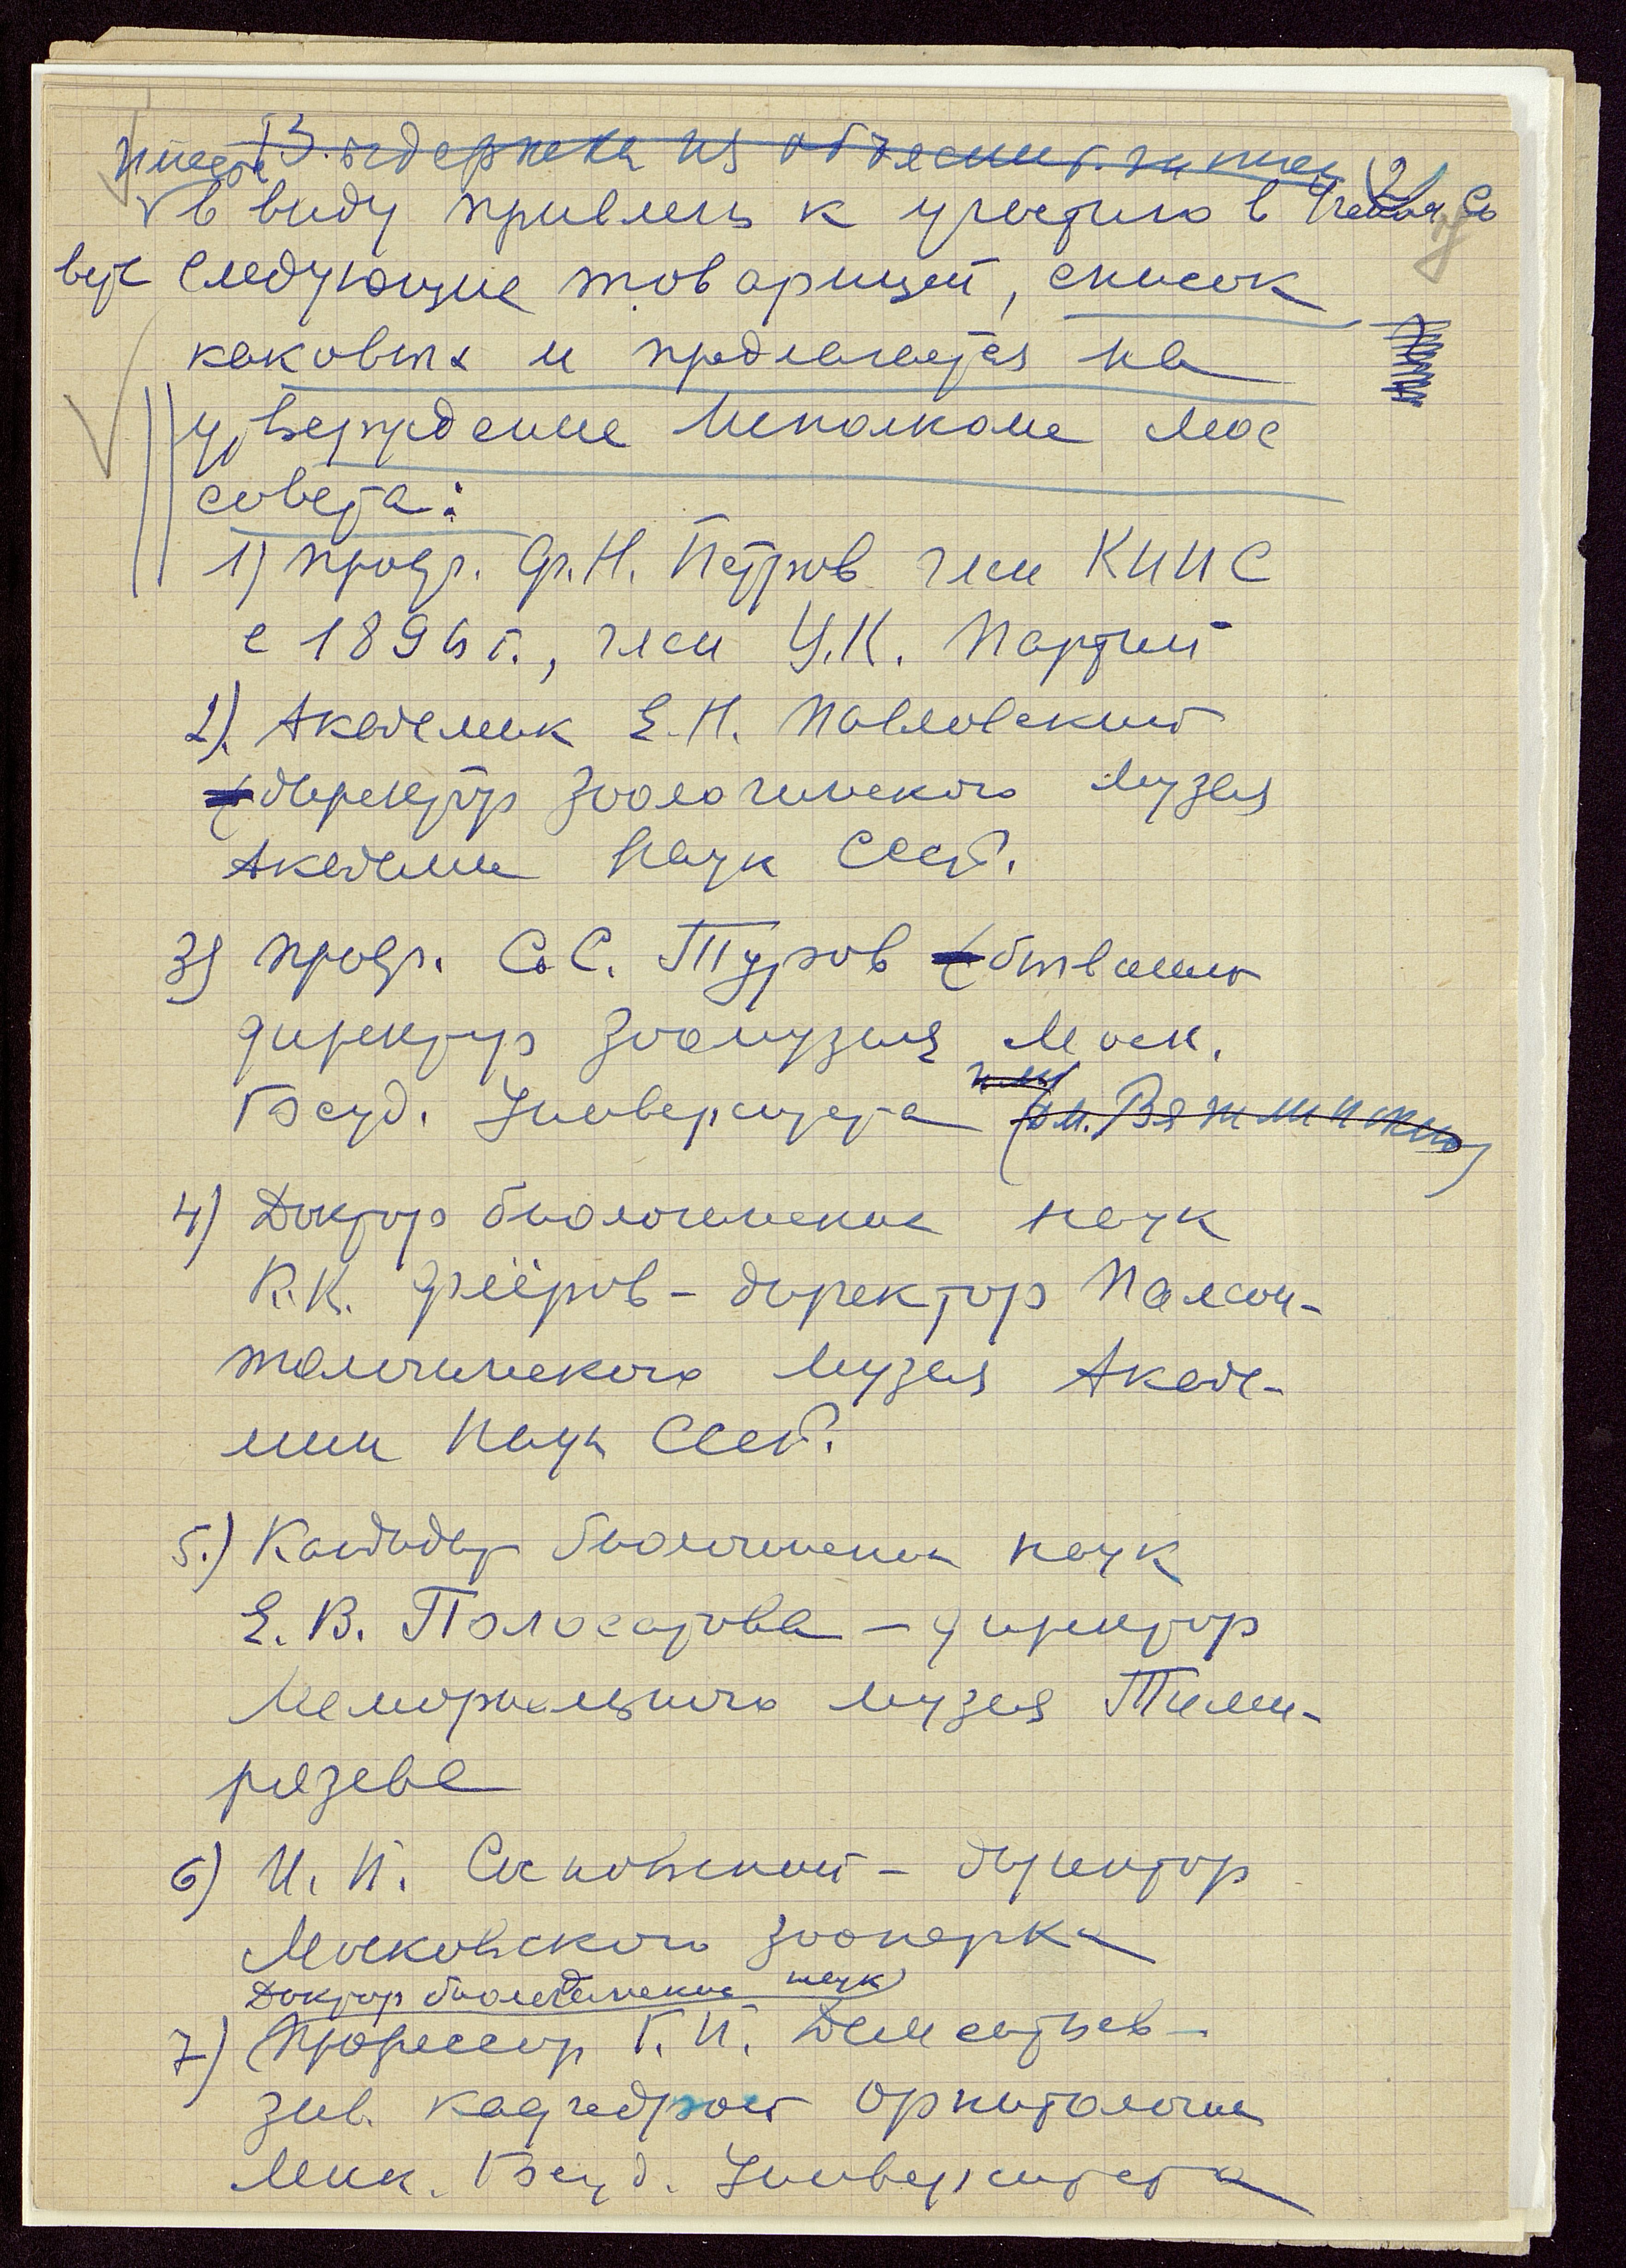 Выдержка из объяснит. записки
Имеется 2)
в виду привлечь к участию в Ученом Со
вете следующие товарищей, список
каковых и предлагается на
утверждение Исполкома Мос
совета:
1) проф. Ф.Н. Петров член КППС
с 1896 г., член Ц.К. Партии
2). Академик Е.Н. Павловский
(директор Зоологического Музея
Академии Наук СССР.
3) проф. С.С. Туров (бывший
директор Зоомузея Моск.
Госуд. Университета
4) Доктор биологических наук
К.К. Флёров – директор Палеон-
тологического Музея Акаде-
мии Наук СССР.
5.) Кандидат биологических наук
Е.В. Полосатова – директор
Мемориального музея Тими-
рязева
6) И.П. Сосновский – директор
Московского Зоопарка
Доктор биологических наук
7) Профессор Г.П. Дементьев –
зав. кафедрой орнитологии
Моск. Госуд. Университета